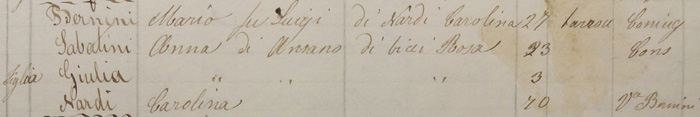 Bernini Mario fu Luigi di Nardi Carolina 27 Coniug
Sabatini Anna di Ansano di Cicci Rosa 23 Cons
figlia Giulia " " " 3
Nardi Carolina 70 Va Bernini